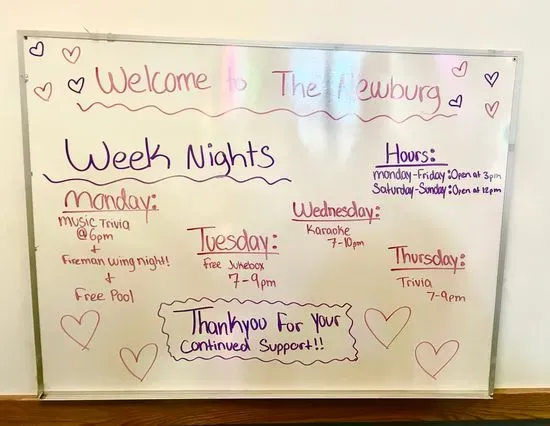 Welcome to The Newburg
Week Nights
Hours:
Monday-Friday: Open at 3pm
Saturday-Sunday: Open at 12pm
Monday:
Music Trivia
@ 6pm
+
Fireman Wing Night!
+
Free Pool
Tuesday:
Free Jukebox
7-9pm
Wednesday:
Karaoke
7-10pm
Thursday:
Trivia
7-9pm
Thankyou For Your
Continued Support!!